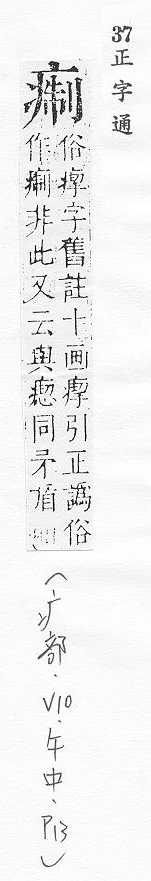 37正字通
痸
俗字舊註十画引正譌俗
作痸非此又云與同矛盾
(疒部、V10、午中、P13)